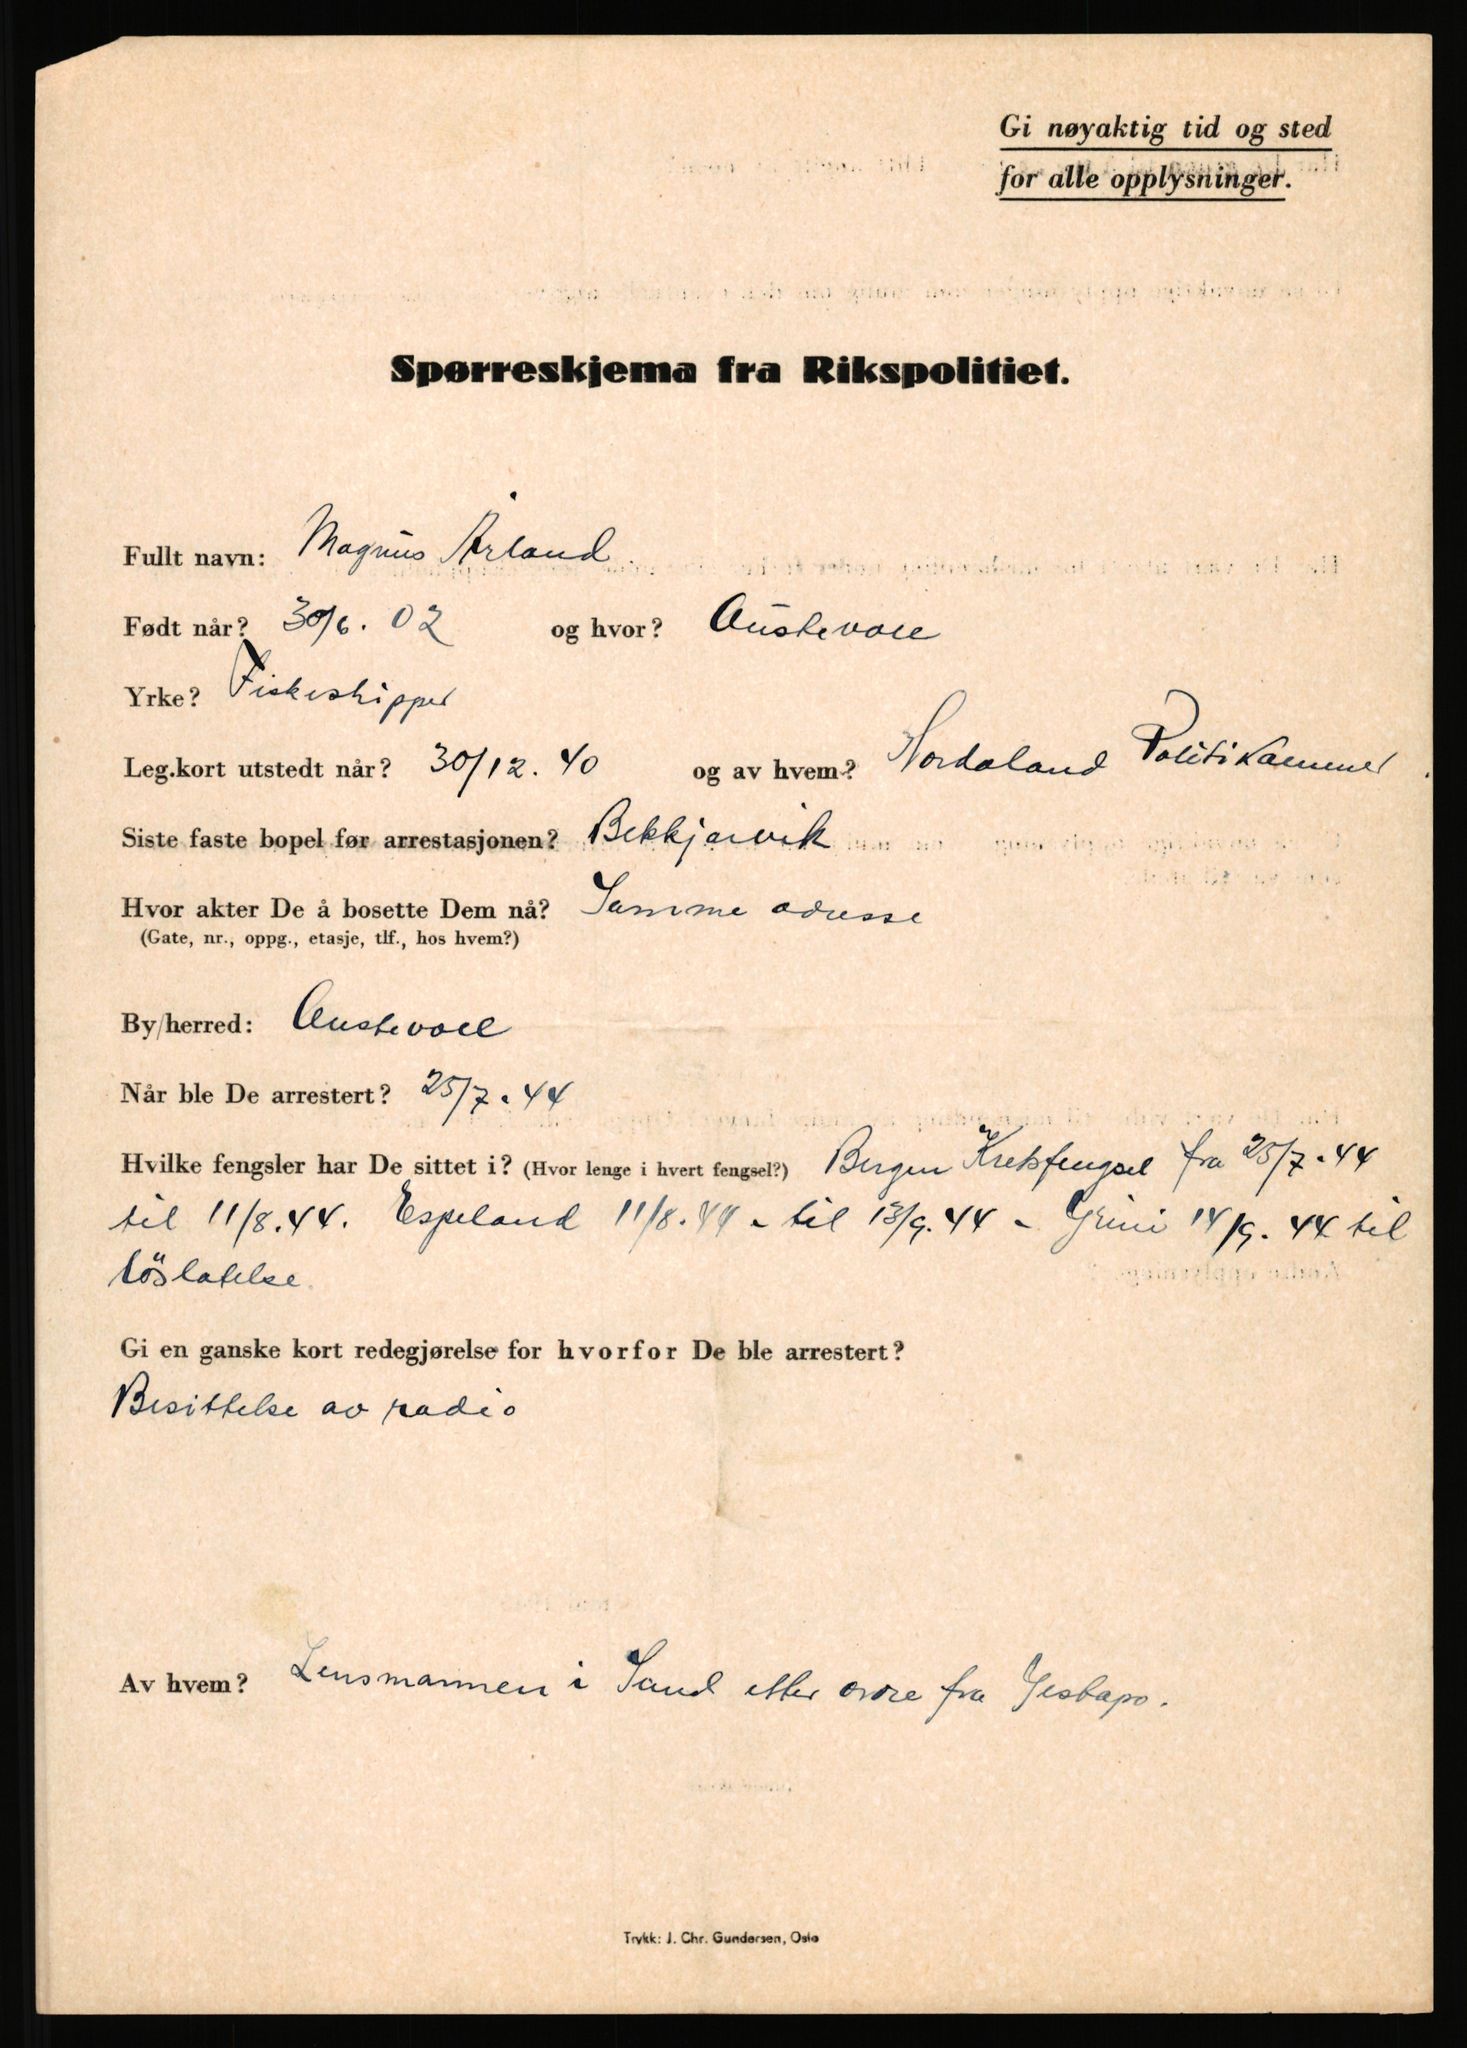 Gi nøyaktig tid og sted
for alle opplysninger.
Spørreskjema fra Rikspolitiet.
Fullt navn: Magnus Årland
Født når? 30/6. 02 og hvor? Austevoll
Yrke? Fiskeskipper
Leg.kort utstedt når? 30/12. 40 og av hvem? Hordaland Politikammer
Siste faste bopel før arrestasjonen? Bekkjarvik
Hvor akter De å bosette Dem nå? Samme adresse
(Gate, nr., oppg., etasje, tlf., hos hvem?)
By/herred: Austevoll
Når ble De arrestert? 25/7. 44
Hvilke fengsler har De sittet i? (Hvor lenge i hvert fengsel?) Bergen Kretsfengsel fra 25/7. 44
til 11/8. 44. Espeland 11/8. 44 - til 13/9. 44 - Grini 14/9. 44 til
löslatelse
Gi en ganske kort redegjørelse for hvorfor De ble arrestert?
Besittelse av radio
Av hvem? Lensmannen i Sund etter ordre fra Gestapo.
Trykk: J. Chr. Gundersen, Oslo